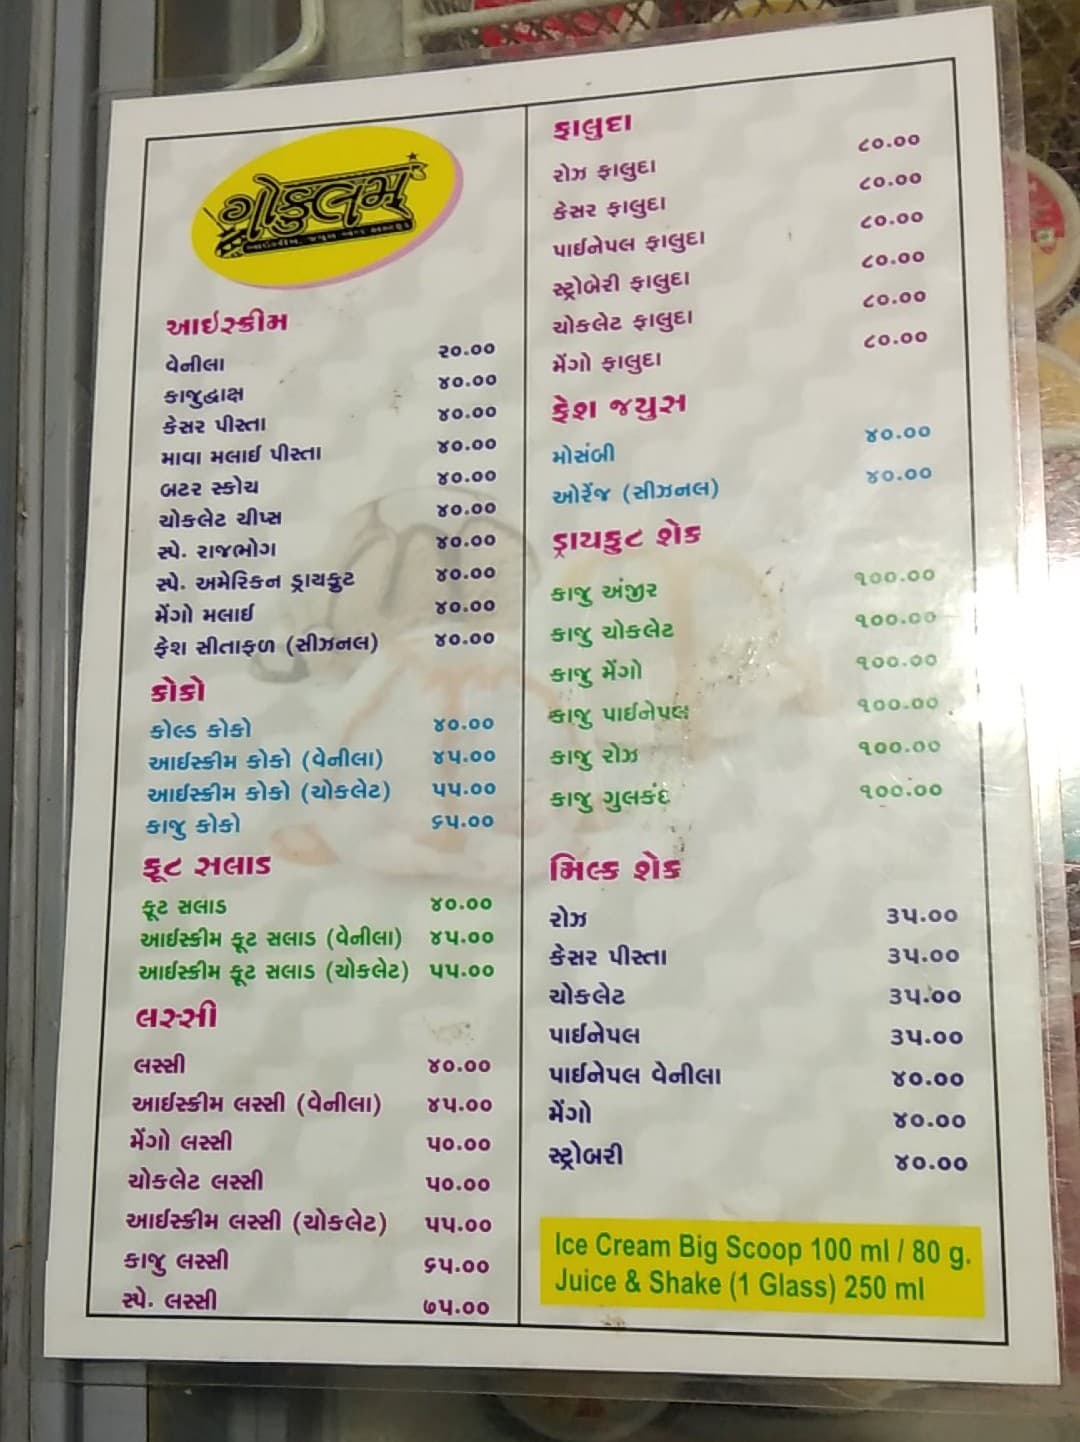 ગોકુલમ્
આઇસ્ક્રીમ, જ્યુસ એન્ડ
આઇસ્ક્રીમ
વેનીલા ૨૦.૦૦
કાજુદ્રાક્ષ ૪૦.૦૦
કેસર પીસ્તા ૪૦.૦૦
માવા મલાઈ પીસ્તા ૪૦.૦૦
બટર સ્કોચ ૪૦.૦૦
ચોકલેટ ચીપ્સ ૪૦.૦૦
સ્પે. રાજભોગ ૪૦.૦૦
સ્પે. અમેરિકન ડ્રાયફ્રુટ ૪૦.૦૦
મેંગો મલાઈ ૪૦.૦૦
ફ્રેશ સીતાફળ (સીઝનલ) ૪૦.૦૦
કોકો
કોલ્ડ કોકો ૪૦.૦૦
આઈસ્ક્રીમ કોકો (વેનીલા) ૪૫.૦૦
આઈસ્ક્રીમ કોકો (ચોકલેટ) ૫૫.૦૦
કાજુ કોકો ૬૫.૦૦
ફ્રૂટ સલાડ
ફ્રૂટ સલાડ ૪૦.૦૦
આઈસ્ક્રીમ ફ્રૂટ સલાડ (વેનીલા) ૪૫.૦૦
આઈસ્ક્રીમ ફ્રૂટ સલાડ (ચોકલેટ) ૫૫.૦૦
લસ્સી
લસ્સી ૪૦.૦૦
આઈસ્ક્રીમ લસ્સી (વેનીલા) ૪૫.૦૦
મેંગો લસ્સી ૫૦.૦૦
ચોકલેટ લસ્સી ૫૦.૦૦
આઈસ્ક્રીમ લસ્સી (ચોકલેટ) ૫૫.૦૦
કાજુ લસ્સી ૬૫.૦૦
સ્પે. લસ્સી ૭૫.૦૦
ફાલુદા
રોઝ ફાલુદા ૮૦.૦૦
કેસર ફાલુદા ૮૦.૦૦
પાઈનેપલ ફાલુદા ૮૦.૦૦
સ્ટ્રોબેરી ફાલુદા ૮૦.૦૦
ચોકલેટ ફાલુદા ૮૦.૦૦
મેંગો ફાલુદા ૮૦.૦૦
ફ્રેશ જયુસ
મોસંબી ૪૦.૦૦
ઓરેંજ (સીઝનલ) ૪૦.૦૦
ડ્રાયફ્રુટ શેક
કાજુ અંજીર ૧૦૦.૦૦
કાજુ ચોકલેટ ૧૦૦.૦૦
કાજુ મેંગો ૧૦૦.૦૦
કાજુ પાઈનેપલ ૧૦૦.૦૦
કાજુ રોઝ ૧૦૦.૦૦
કાજુ ગુલકંદ ૧૦૦.૦૦
મિલ્ક શેક
રોઝ ૩૫.૦૦
કેસર પીસ્તા ૩૫.૦૦
ચોકલેટ ૩૫.૦૦
પાઈનેપલ ૩૫.૦૦
પાઈનેપલ વેનીલા ૪૦.૦૦
મેંગો ૪૦.૦૦
સ્ટ્રોબરી ૪૦.૦૦
Ice Cream Big Scoop 100 ml / 80 g.
Juice & Shake (1 Glass) 250 ml